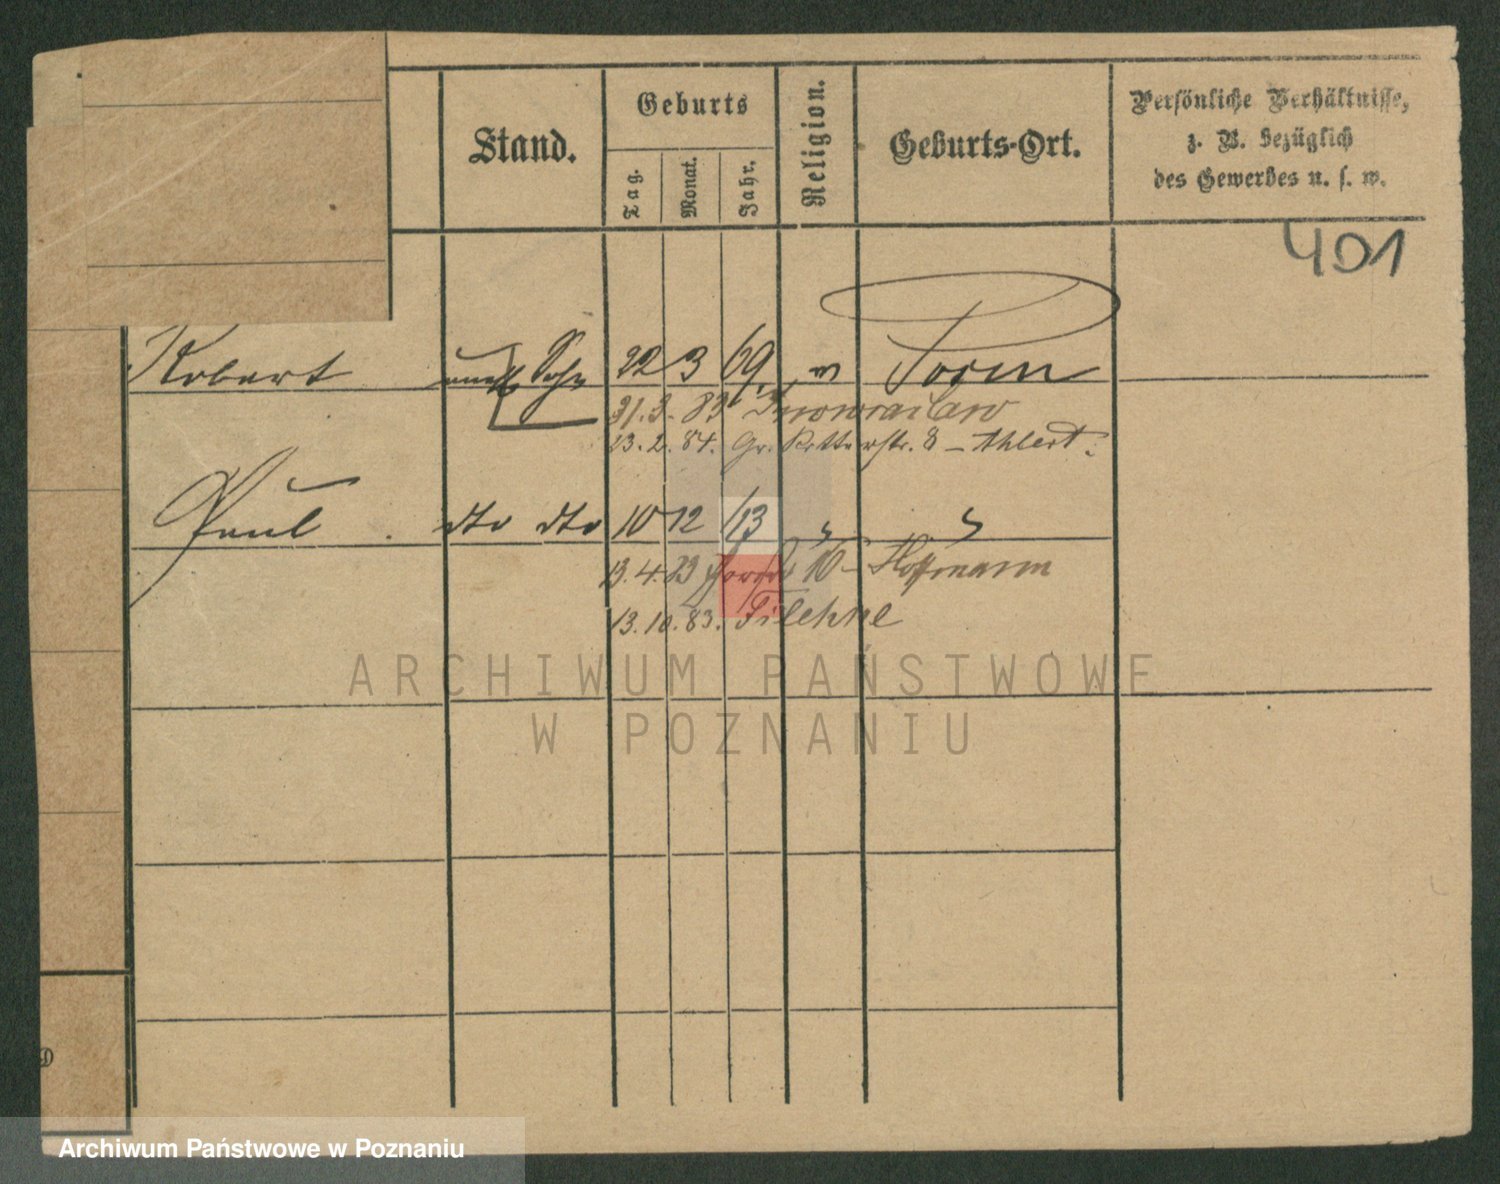 Stand.
Geburts
Tag.
Monat.
Jahr.
Religion.
Geburts-Ort.
Persönliche Verhältnisse,
z. B. bezüglich
des Gewerbes u. s. w.
401
Robert Sohn 22 3 69 Posen
31.3.83 Inowraclaw
13.2.84. Gr. Ritterstr. 8 – Ahlert.
Paul dto dto 10 12 73 "
13.4.83 10 – Hoffmann
13.10.83. Filehne
ARCHIWUM PAŃSTWOWE
W POZNANIU
Archiwum Państwowe w Poznaniu